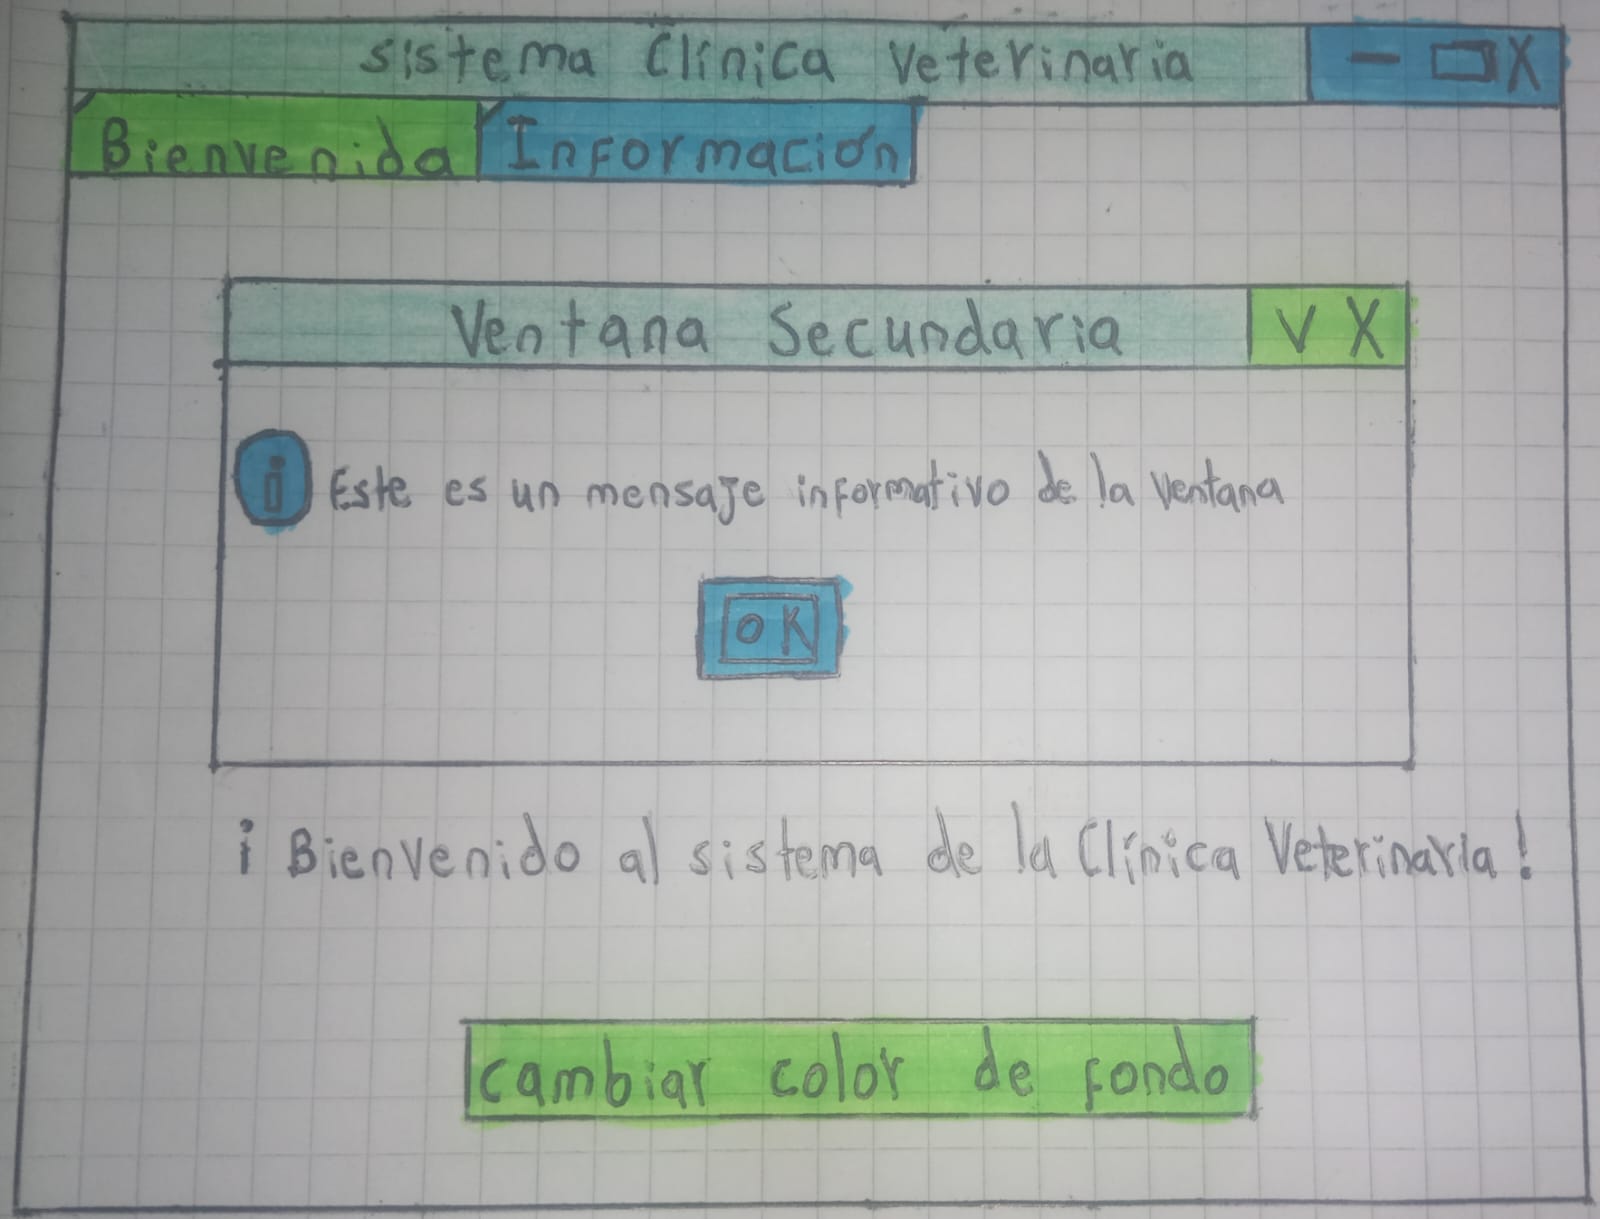 Sistema Clínica Veterinaria - X
Bienvenida Información
Ventana Secundaria V X
i Este es un mensaje informativo de la ventana
OK
¡Bienvenido al sistema de la Clínica Veterinaria!
cambiar color de fondo